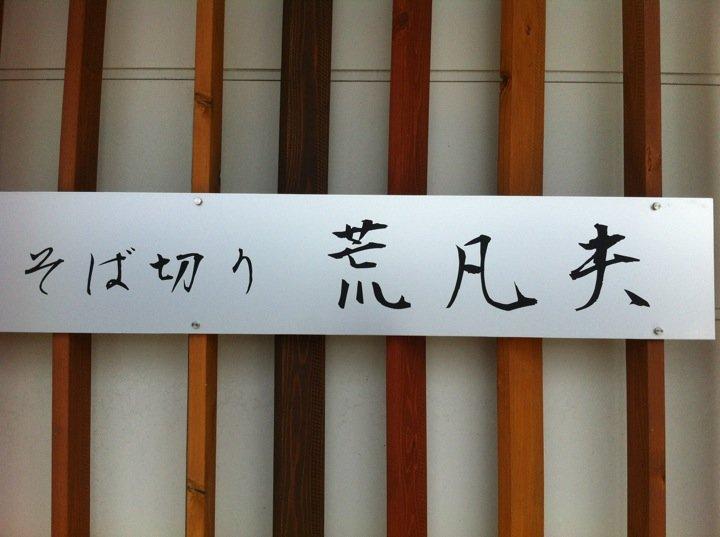 そば切り 荒凡夫